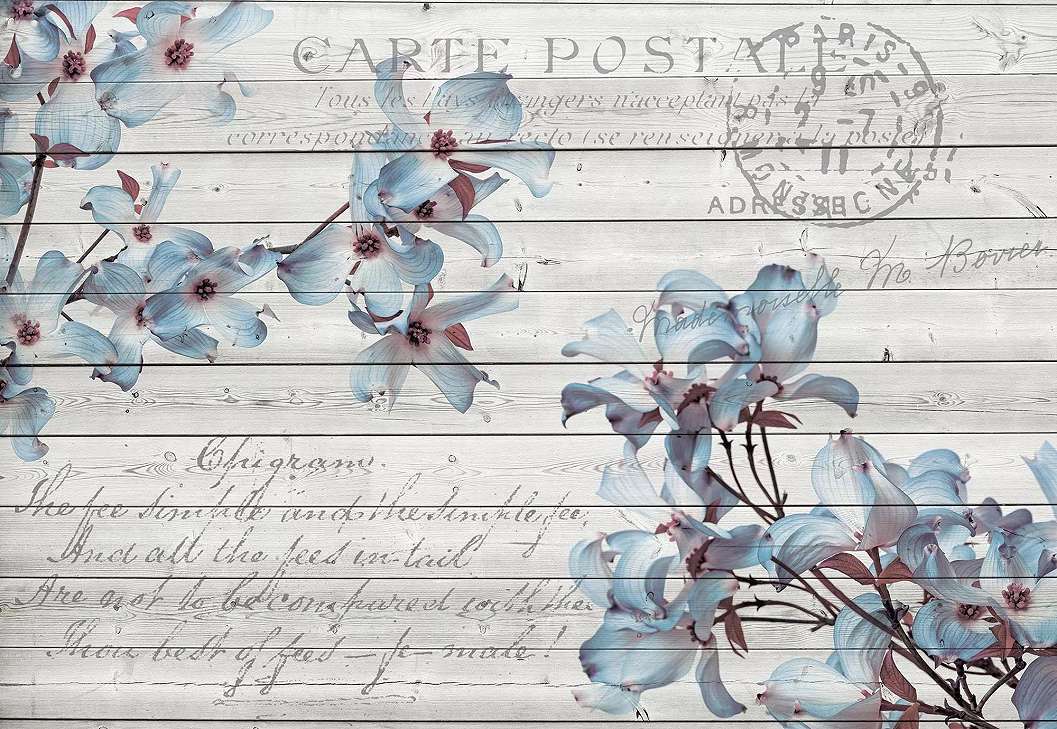 CARTE POSTALE
Tous les Pays étrangers n'acceptent pas la
correspondance au recto (se renseigner à la poste)
PARIS
ADRESSE
Mademoiselle M. Bovier
Epigram.
The fee simple and the simple fee,
And all the fees in tail
Are not to be compared with thee
Thou best of fees - fe-male!